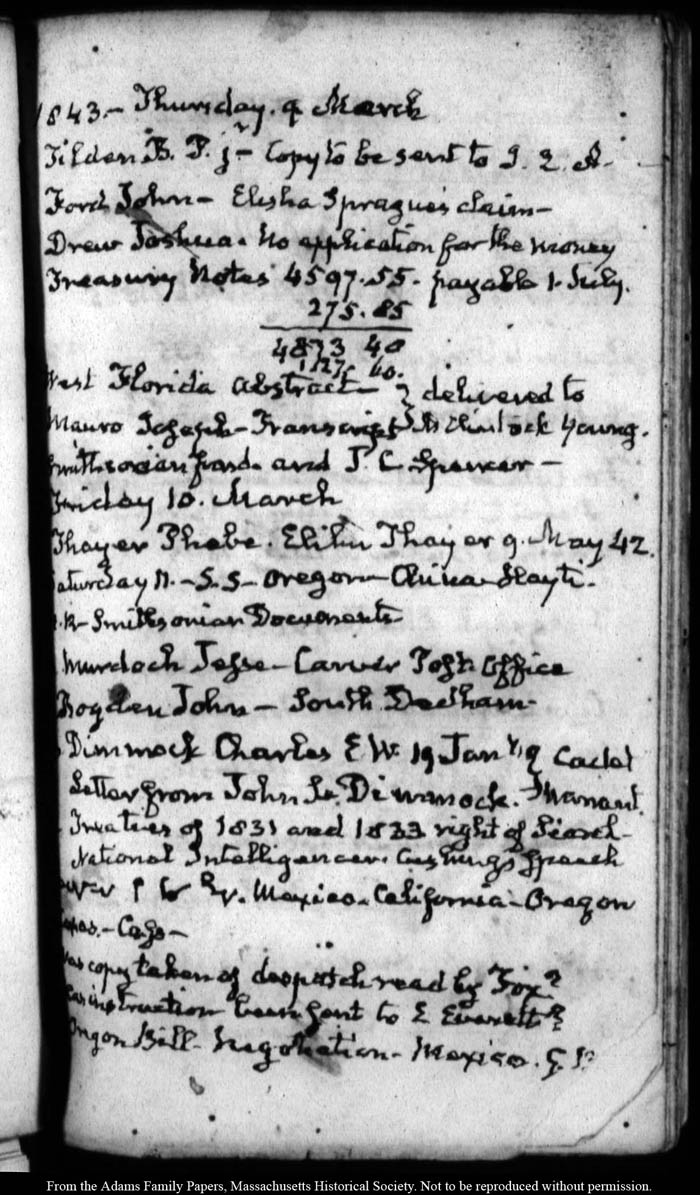 1843.- Thursday. 9 March
Tilden B. P. jr - Copy to be sent to J. Q. A.
Ford John - Elisha Sprague's claim -
Drew Joshua. No application for the money
Treasury Notes 4597.55. payable 1. July.
275.85
4873 40
1127, 60.
West Florida Abstract - delivered to
Mauro Joseph - Transcript McClintock Young.
Smithsonian fund. and J. C. Spencer -
Friday 10. March
Thayer Phebe. Elihu Thayer 9. May 42.
Saturday 11. - S. S - Oregon - China - Hayti.
Smithsonian Documents
Murdoch Jesse - Carver Post Office
Bogden John - South Dedham -
Dimmock Charles E W. 19 Jany 42 Cadet
Letter from John L. Dimmock.
Treaties of 1831 and 1833 right of Search -
National Intelligencer. Cushing's Speech
Mexico. California - Oregon
Texas. -
Was copy taken of despatch read by Fox?
Has instruction been sent to E Everett?
Oregon Bill - Negotiation - Mexico.
From the Adams Family Papers, Massachusetts Historical Society. Not to be reproduced without permission.